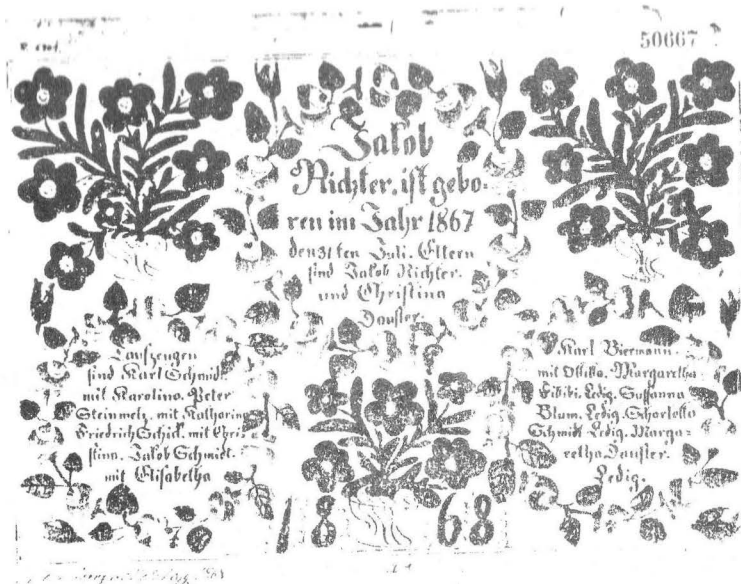 50667
Jakob
Richter, ist gebo-
ren im Jahr 1867
den 31ten Juli. Eltern
sind Jakob Richter.
und Christina
Dauster.
Taufzeugen
sind Karl Schmidt
mit Karolina. Peter
Steinmetz. mit Katharina
Friedrich Schick. mit Chri-
stina. Jakob Schmidt.
mit Elisabetha
Karl Biermann.
mit Margaretha
Ledig. Susanna
Blum. Ledig. Schorlotta
Schmidt Ledig. Marga-
retha Dauster.
Ledig.
1868